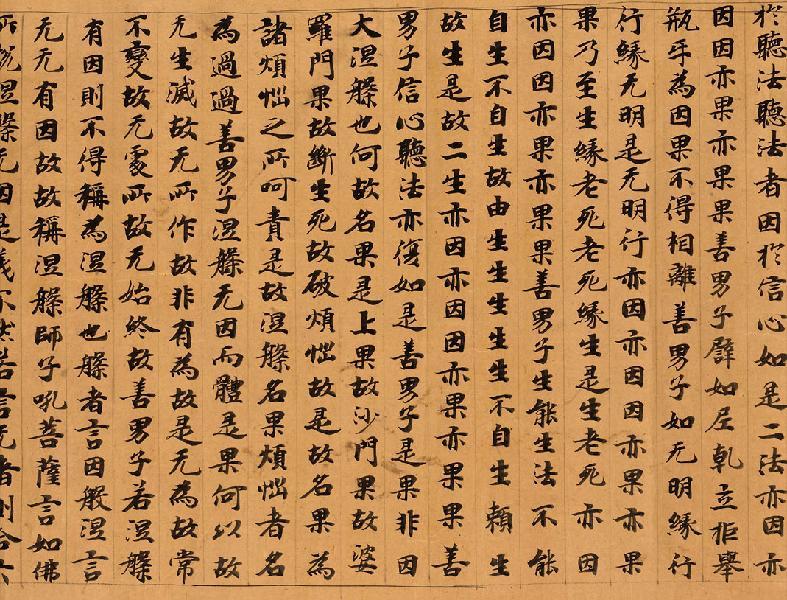 於聽法聽法者因於信心如是二法亦因亦
因因亦果亦果果善男子譬如尼乹立拒舉
瓶乎為因果不得相離善男子如无明緣行
行緣无明是无明行亦因亦因因亦果亦果
果乃至生緣老死老死緣生是生老死亦因
亦因因亦果亦果果善男子生能生法不能
自生不自生故由生生生生生不自生賴生
故生是故二生亦因亦因因亦果亦果果善
男子信心聽法亦復如是善男子是果非因
大涅槃也何故名果是上果故沙門果故婆
羅門果故斷生死故破煩惱故是故名果為
諸煩惱之所呵責是故涅槃名果煩惱者名
為過過善男子涅槃无因而體是果何以故
无生滅故无所作故非有為故是无為故常
不變故无處所故无始終故善男子若涅槃
有因則不得稱為涅槃也槃者言因般涅言
无无有因故故稱涅槃師子吼菩薩言如佛
所說涅槃无因是義不然若言无者則合六